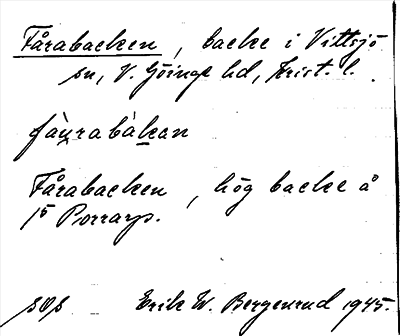 Fårabacken, backe i Vittsjö
sn, V. Göinge hd, Krist. l.
fàu̯rabàkan
Fårabacken, hög backe å
15 Porrarp.
Erik W. Bergenrud 1945.